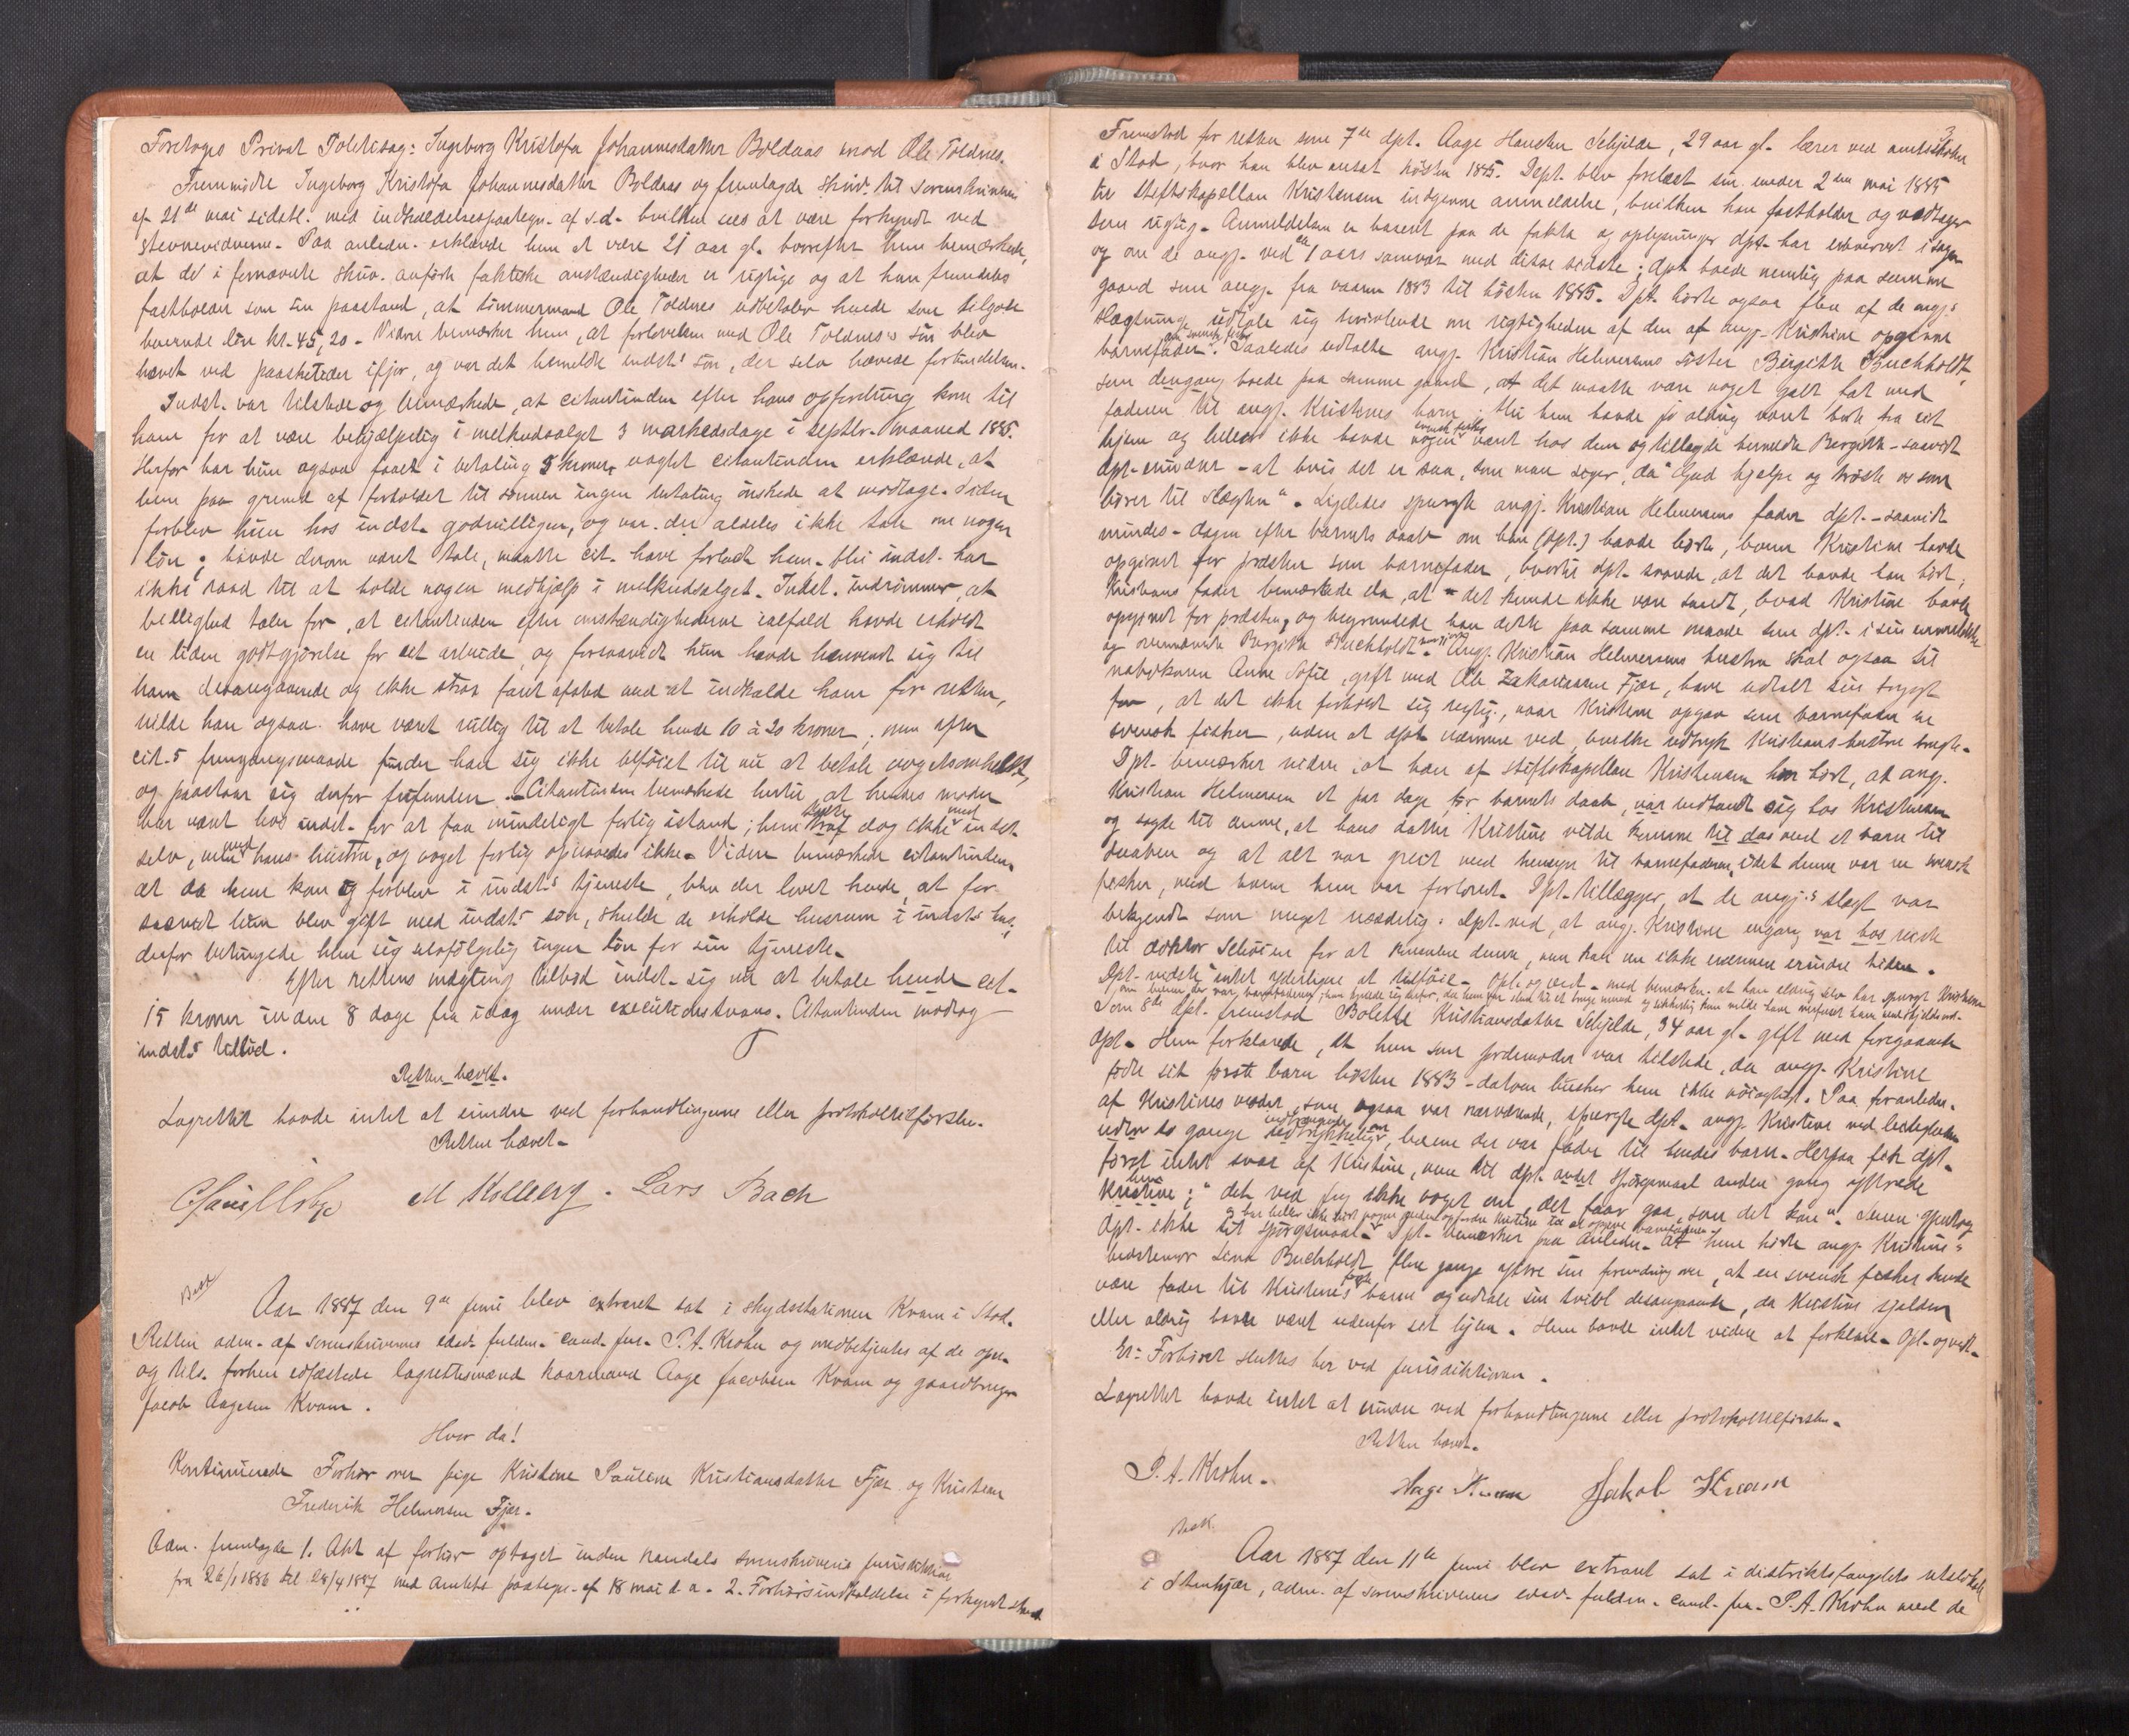 Foretoges Privat Politisag: Ingeborg Kristofa Johannesdatter Boldaas mod Ole Toldnes.
Fremmødte Ingeborg Kristofa Johannesdatter Boldaas og fremlagde skriv. til sorenskriveren
af 21de mai sidstl. med indkaldelsespaategn. af s.d. hvilken sees at være forkyndt ved
stevnevidnerne. Paa anledn. erklærede hun at være 21 aar gl. hvorefter hun bemærkede,
at de i fornævnte skriv. anførte faktiske omstændigheder er rigtige og at hun fremdeles
fastholder som sin paastand, at tømmermand Ole Toldnes udbetaler hende som tilgode
havende løn kr. 45,20. Videre bemærker hun, at forlovelsen med Ole Toldnes's søn blev
hævet ved paasketider ifjor, og var det bemeldte indst.s søn, der selv hævede forbindelsen.
Indst. var tilstede og bemærkede, at citantinden efter hans opfordring kom til
ham for at være behjælpelig i melkeudsalget 3 markedsdage i septbr. maaned 1885.
Herfor har hun ogsaa faaet i betaling 5 kroner, uagtet citantinden erklærede, at
hun paa grund af forholdet til sønnen ingen betaling ønskede at modtage. Siden
forblev hun hos indst. godvilligen, og var der aldeles ikke tale om nogen
løn; havde derom været tale, maatte cit. have forladt ham. Thi indst. har
ikke raad til at holde nogen medhjælp i melkeudsalget. Indst. indrømmer, at
billighed taler for, at citantinden efter omstændighederne ialfald havde erholdt
en liden godtgjørelse for sit arbeide, og forsaavidt hun havde henvendt sig til
ham desangaaende og ikke strax faret afsted med at indkalde ham for retten,
vilde han ogsaa have været villig til at betale hende 10 à 20 kroner; men efter
cit.s fremgangsmaade finder han sig ikke beføiet til nu at betale nogetsomhelst,
og paastaar sig derfor frifunden. Citantinden bemærkede hertil, at hendes moder
har været hos indst. for at faa mindeligt forlig istand; hun talte dog ikke med indst.
selv, men med hans hustru, og noget forlig opnaaedes ikke. Videre bemærkede citantinden,
at da hun kom og forblev i indst.s tjeneste, blev der lovet hende, at for-
saavidt hun blev gift med indst.s søn, skulde de erholde husrum i indst.s hus;
derfor betingede hun sig selvfølgelig ingen løn for sin tjeneste.
Efter rettens mægling tilbød indst. sig nu at betale hende cit.
15 kroner inden 8 dage fra idag under executionstvang. Citantinden modtog
indst.s tilbud.
Retten hævet.
Lagrettet havde intet at erindre ved forhandlingerne eller protokoltilførslen.
Retten hævet.
M Kolberg. Lars Bach
Aar 1887 den 9de juni blev extraret sat i skydsstationen Kvam i Stod.
Retten adm. af sorenskriverens edsv. fuldm. cand. jur. P. A. Krohn og medbetjentes af de opn.
og tils. forhen edfæstede lagrettesmænd kaarmand Aage Jacobsen Kvam og gaardbruger
Jacob Aagesen Kvam.
Hvor da!
Kontinuerede Forhør over pige Kristine Pauline Kristiansdatter Fjær og Kristian
Frederik Helmersen Fjær.
Adm. fremlagde 1. Akt af forhør optaget inden Namdals sorenskriveris jurisdiktion
fra 26/1 1886 til 28/4 1887 med amtets paategn. af 18 mai d.a. 2. Forhørsindkaldelse i forkyndt stand.
3
Fremstod for retten som 7de dpt. Aage Hansen Schjelde, 29 aar gl. lærer ved amtsskolen
i Stod, hvor han blev ansat høsten 1885. Dept. blev forelæst sin under 2den mai 1885
til stiftskapellan Kristensen indgivne anmeldelse, hvilken han fastholder og vedtager
som rigtig. Anmeldelsen er baseret paa de fakta og oplysninger dpt. har erhvervet i sagen
og om de angj. ved et 1 aars samvær med disse sidste; dpt. boede nemlig paa samme
gaard som angj. fra vaaren 1883 til høsten 1885. Dpt. hørte ogsaa flere af de angj.s
slægtninge udtale sig tvivlende om rigtigheden af den af angj. Kristine opgivne
barnefader. Saaledes udtalte angj. Kristian Helmersens søster Birgitte Buchholdt,
som dengang boede paa samme gaard, at det maatte være noget galt fat med
faderen til angj. Kristines barn. Thi hun havde jo aldrig været borte fra sit
hjem og heller ikke havde nogen svensk fisker været hos dem og tillagde bemeldte Bergitte - saavidt
dpt. erindrer - at hvis det er saa, som man siger, da "Gud hjelpe og trøste os som
hører til slægten". Ligeledes spurgte angj. Kristian Helmersens fader dpt. - saavidt
mindes - dagen efter barnets daab om han (dpt.) havde hørt, hvem Kristine havde
opgivet for præsten som barnefader, hvortil dpt. svarede, at det havde han hørt;
Kristians fader bemærkede da, at det kunde ikke være sandt, hvad Kristine havde
opgivet for præsten, og begrundede han dette paa samme maade som dpt. i sin anmeldelse
og ovennævnte Birgitte Buchholdt. Angj. Kristian Helmersens hustru skal ogsaa til
nabokonen Anne Sofie, gift med Ole Zakariassen Fjær, have udtalt sin frygt
for, at det ikke forholdt sig rigtig, naar Kristine opgav som barnefader en
svensk fisker, uden at dpt. nærmere ved, hvilke udtryk Kristians hustru brugte.
Dpt. bemærker videre, at han af stiftskapellan Kristensen har hørt, at angj.
Kristian Helmersen et par dage før barnets daab, var indfandt sig hos Kristensen
og sagde til denne, at hans datter Kristine vilde komme til das med et barn til
daaben og at alt var greit med hensyn til barnefaderen, idet denne var en svensk
fisker, med hvem hun var forlovet. Dpt. tillægger, at de angj.s slægt var
bekjendt som meget usædelig. Dpt. ved, at angj. Kristine engang var hos
til doktor Schøien for at konsulere denne, men kan nu ikke nærmere erindre tiden.
Dpt. vidste intet yderligere at tilføie. Opl. og vedt. med bemærkn. at han aldrig selv har spurgt Kristine
Som 8de dpt. fremstod Bolette Kristiansdatter Schjelde, 34 aar gl. gift med foregaaende
dpt. Hun forklarede, at hun som jordemoder var tilstede, da angj. Kristine
fødte sit første barn høsten 1883 - datoen husker hun ikke nøiagtigt. Paa foranledn.
af Kristines moder, som ogsaa var nærværende, spurgte dpt. angj. Kristine ved leilighed
to gange indtrængende om, hvem der var fader til hendes barn. Herpaa fik dpt.
først intet svar af Kristine, men til dpt. andet spørgsmaal anden gang yttrede
Kristine; "det ved jeg ikke noget om, det faar gaa, som det kan". Senere gjentog
dpt. ikke sit spørgsmaal. Dpt. bemærker paa anledn. at hun hørte angj. Kristines
bedstemor Lina Buchholdt flere gange yttre sin forundring over, at en svensk fisker skulde
være fader til Kristines første barn og udtale sin tvivl desangaaende, da Kristine sjelden
eller aldrig havde været udenfor sit hjem. Hun havde intet videre at forklare. Opl. og vedt.
Er. Forhøret sluttes her ved jurisdiktionen.
Lagrettet havde intet at erindre ved forhandlingerne eller protokoltilførslen.
Retten hævet.
P. A. Krohn. Aage Kvam Jakob Kvam
Aar 1887 den 11te juni blev extraret sat i distriktsfængslets retslokale
i Stenkjær, adm. af sorenskriverens edsv. fuldm. cand. jur. P. A. Krohn med de